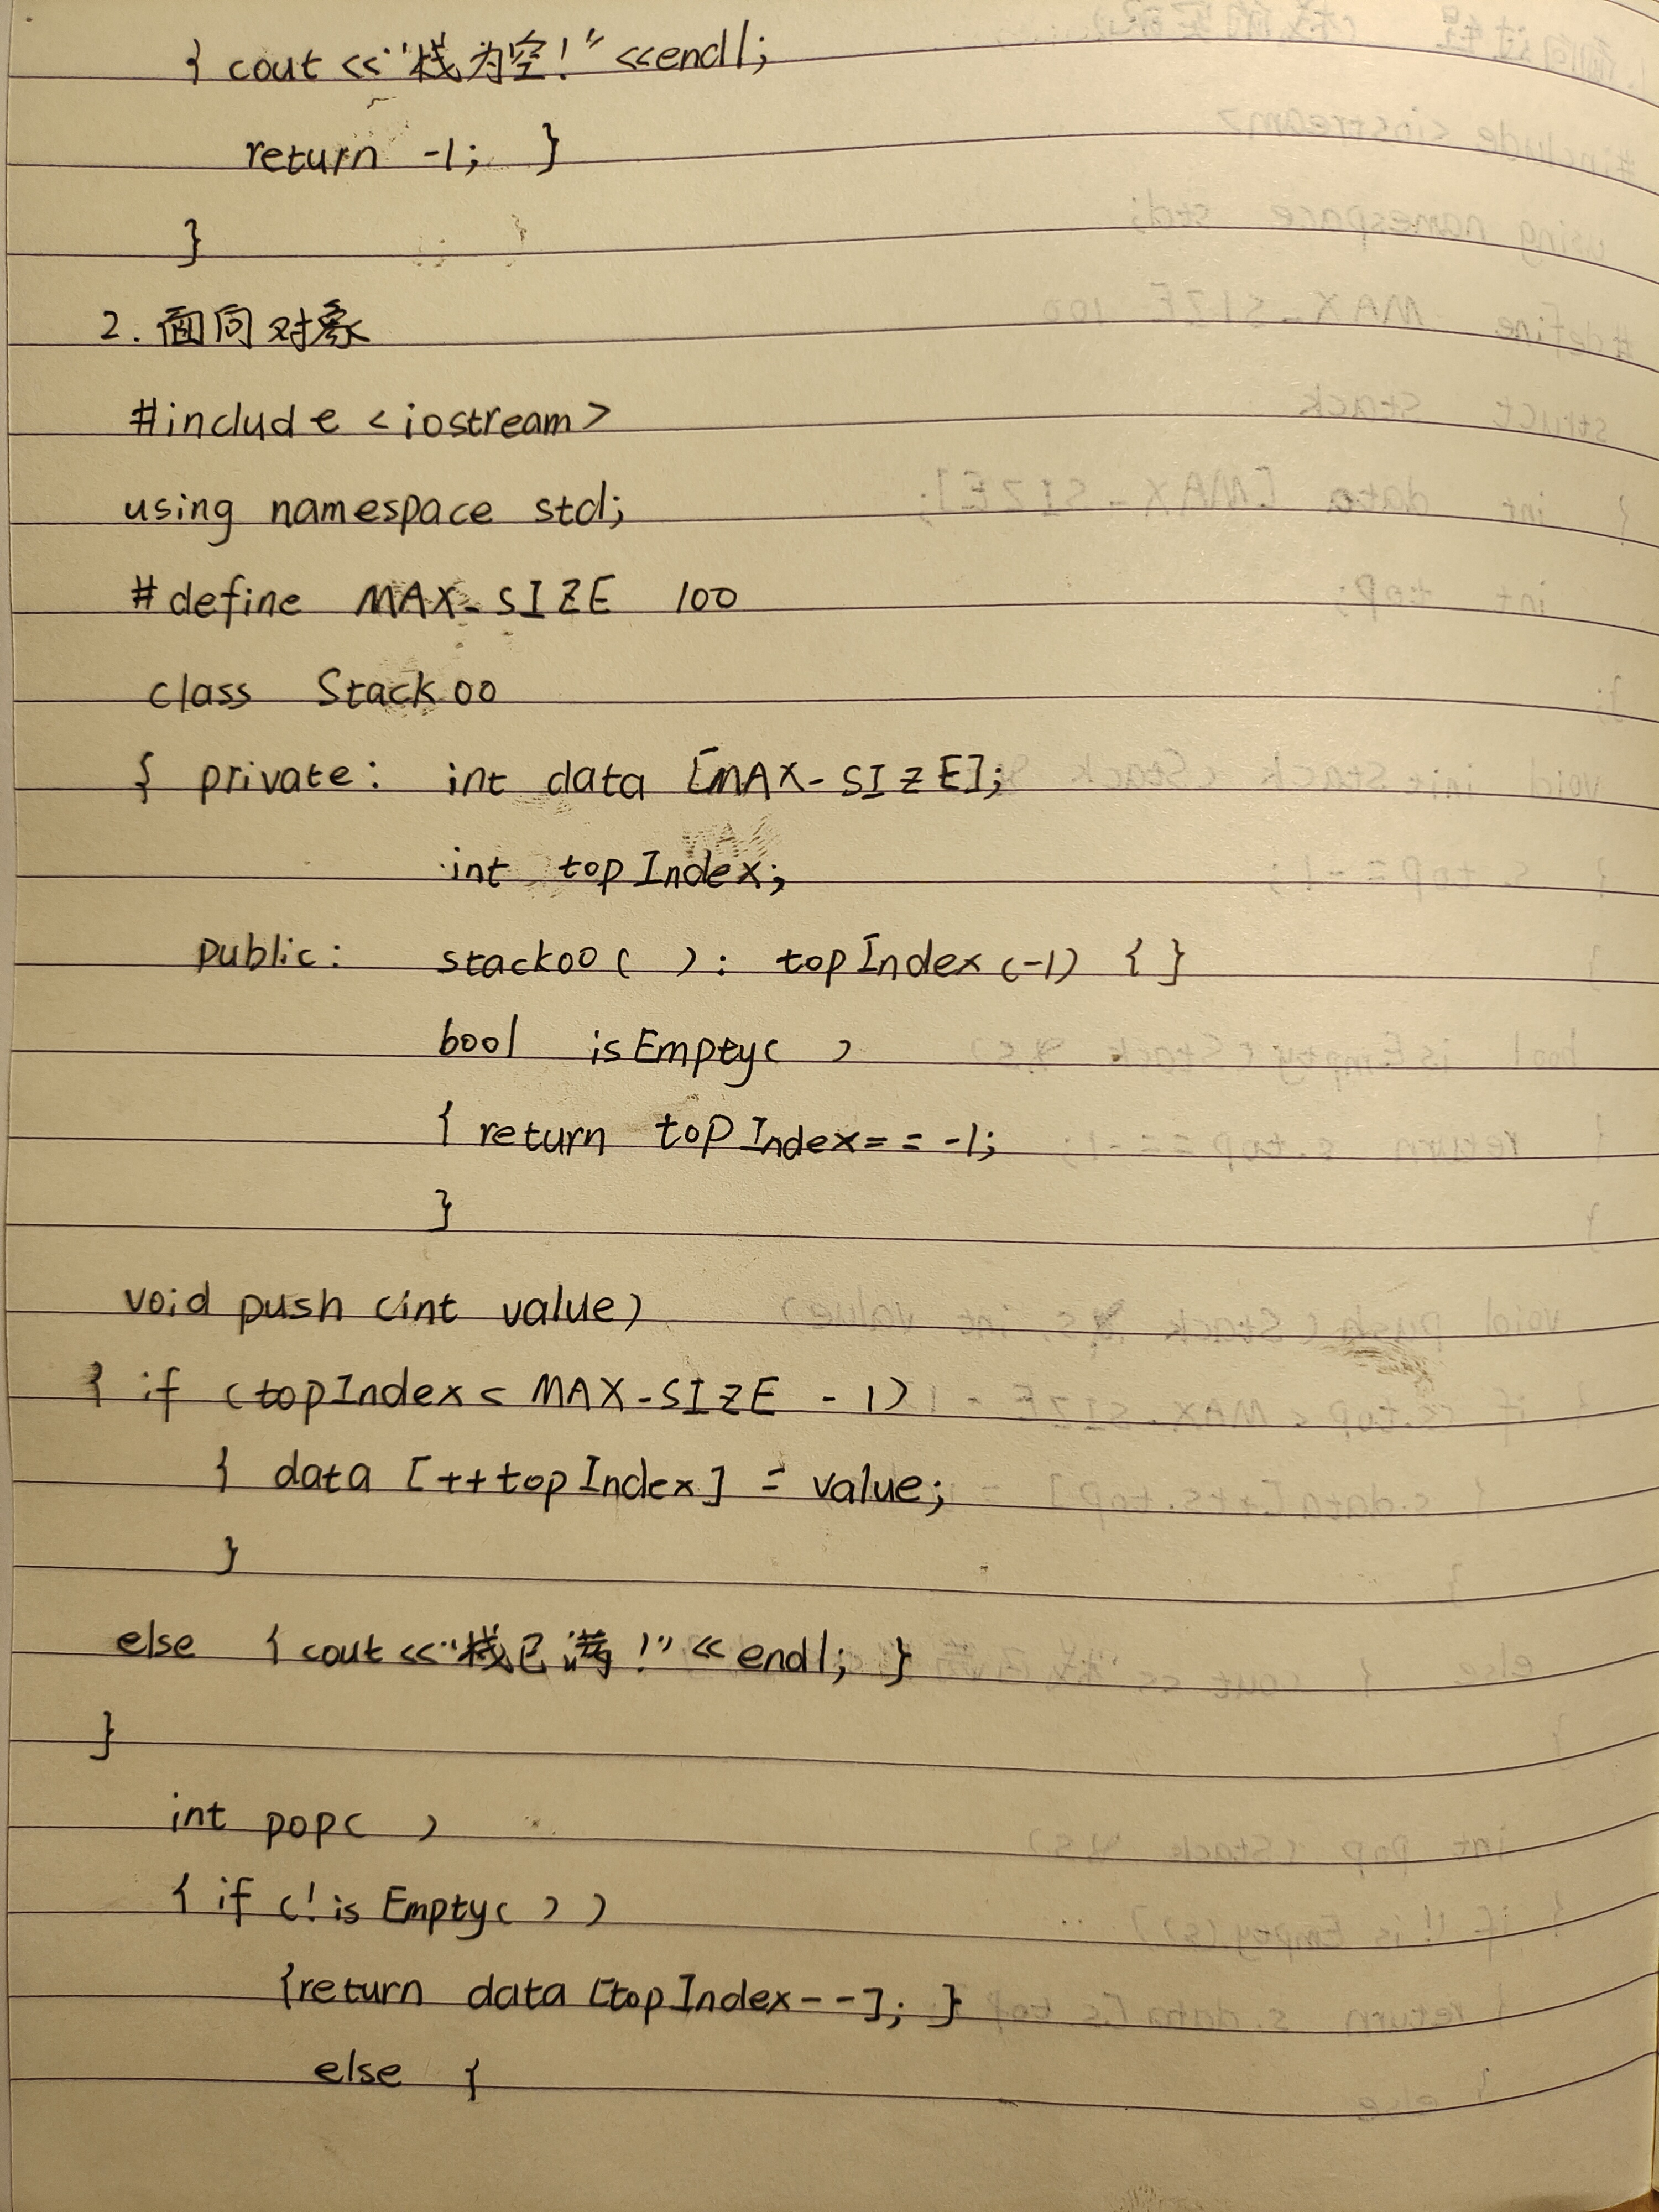 { cout <<"栈为空!" <<endl;
return -1; }
}
2. 面向对象
#include <iostream>
using namespace std;
#define MAX-SIZE 100
class Stackoo
{ private: int data [MAX-SIZE];
int topIndex;
public: stackoo( ): topIndex(-1) { }
bool isEmpty( )
{ return topIndex== -1;
}
void push (int value)
{ if (topIndex< MAX-SIZE - 1)
{ data [++topIndex] = value;
}
else { cout <<"栈已满!" << endl; }
}
int pop( )
{ if (!isEmpty( ) )
{return data [topIndex--]; }
else {